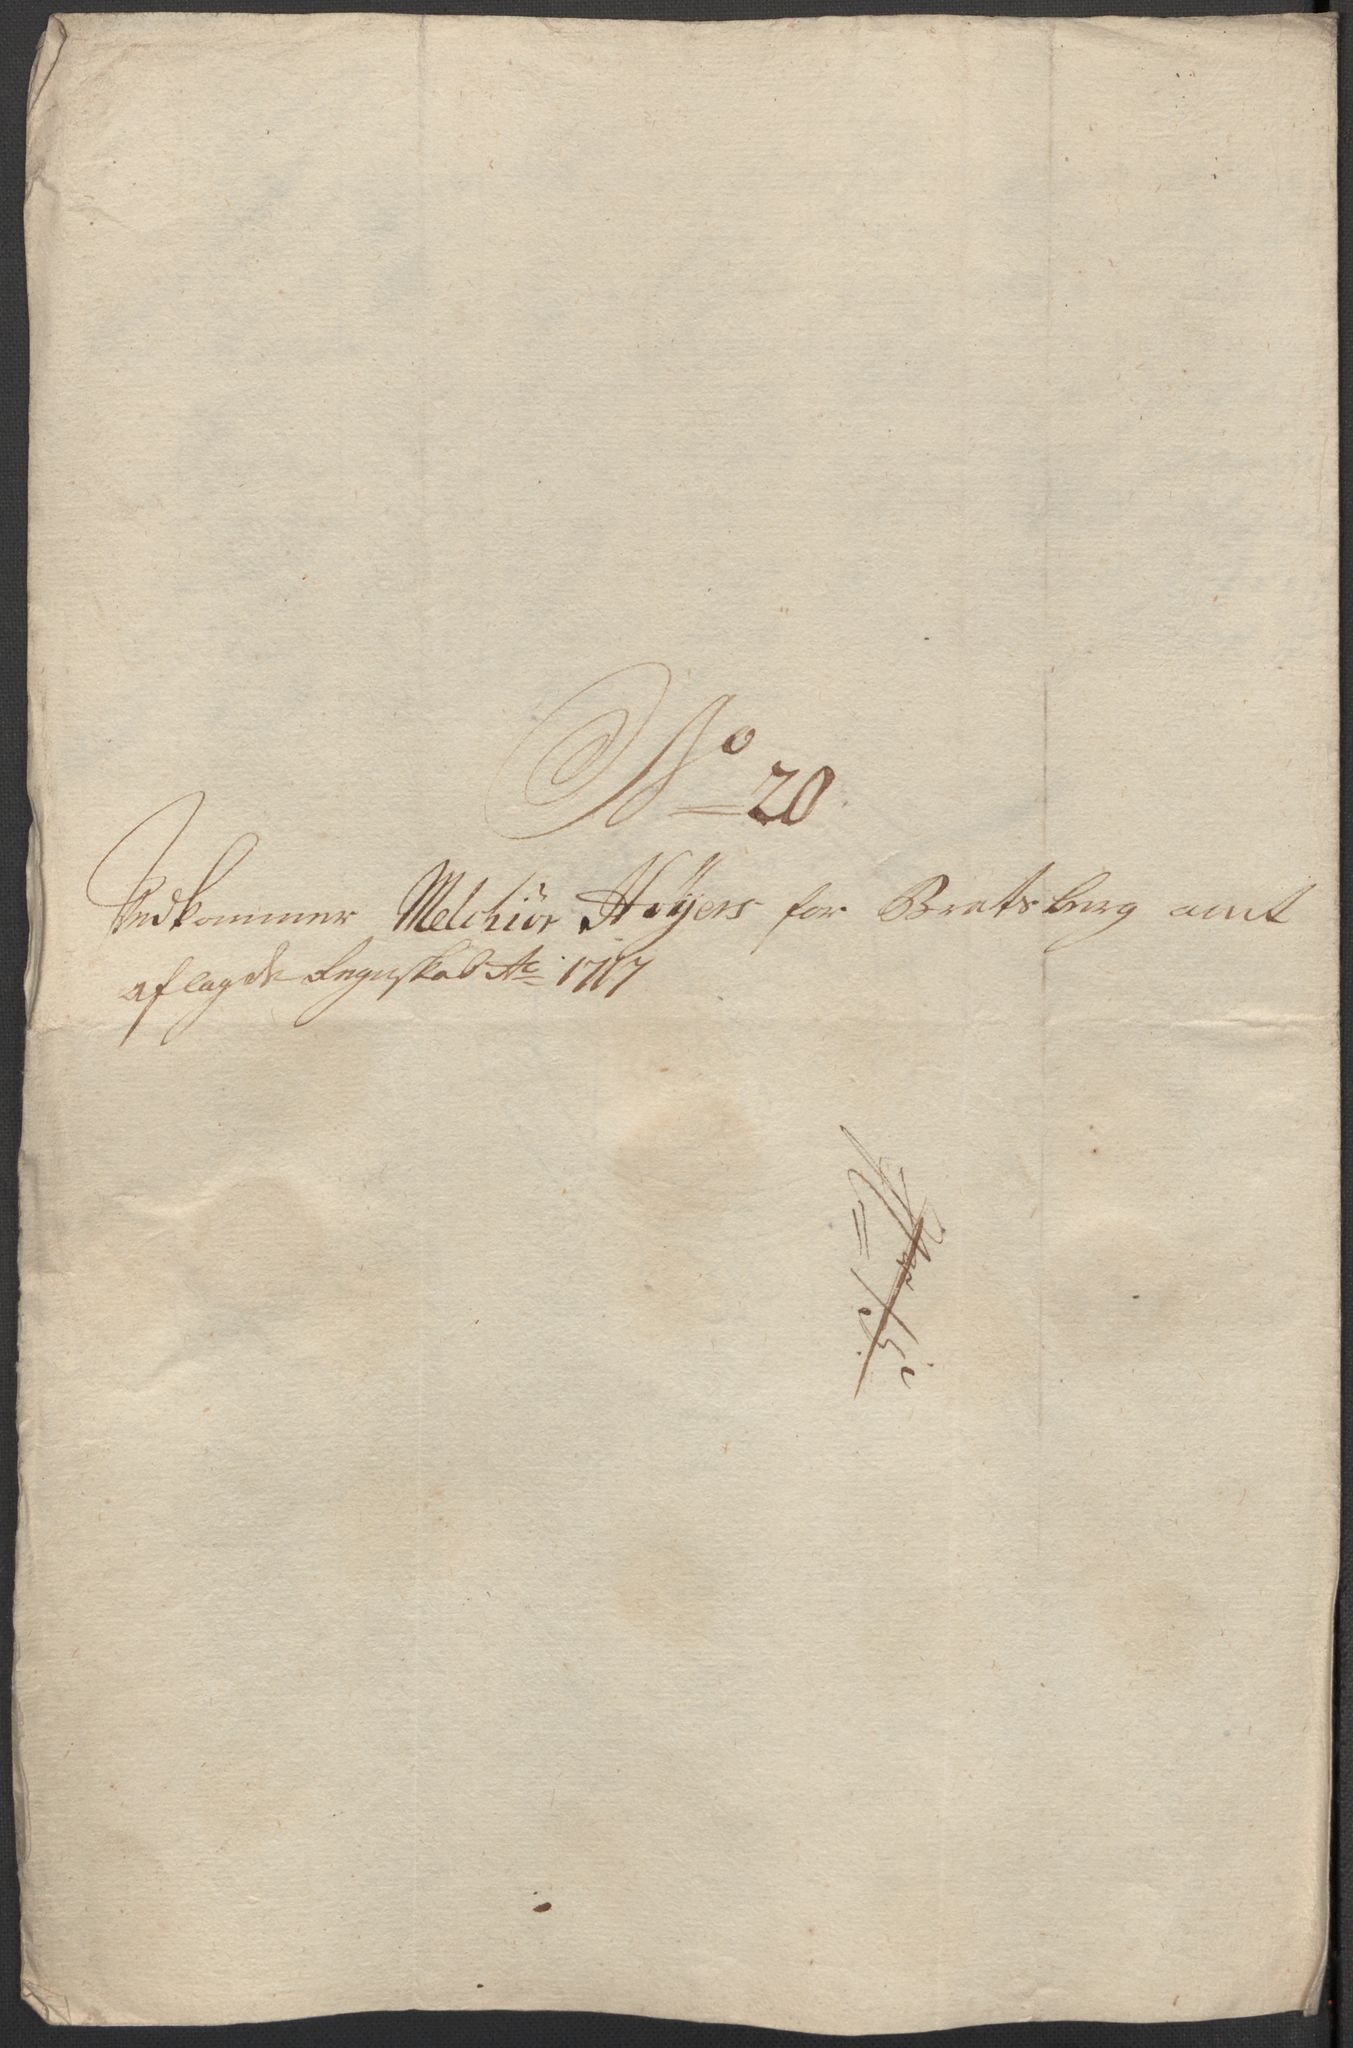 No 20
Vedkommer Melchior Höÿers for Bratsberg amt
aflagde Regnskab Ao 1717